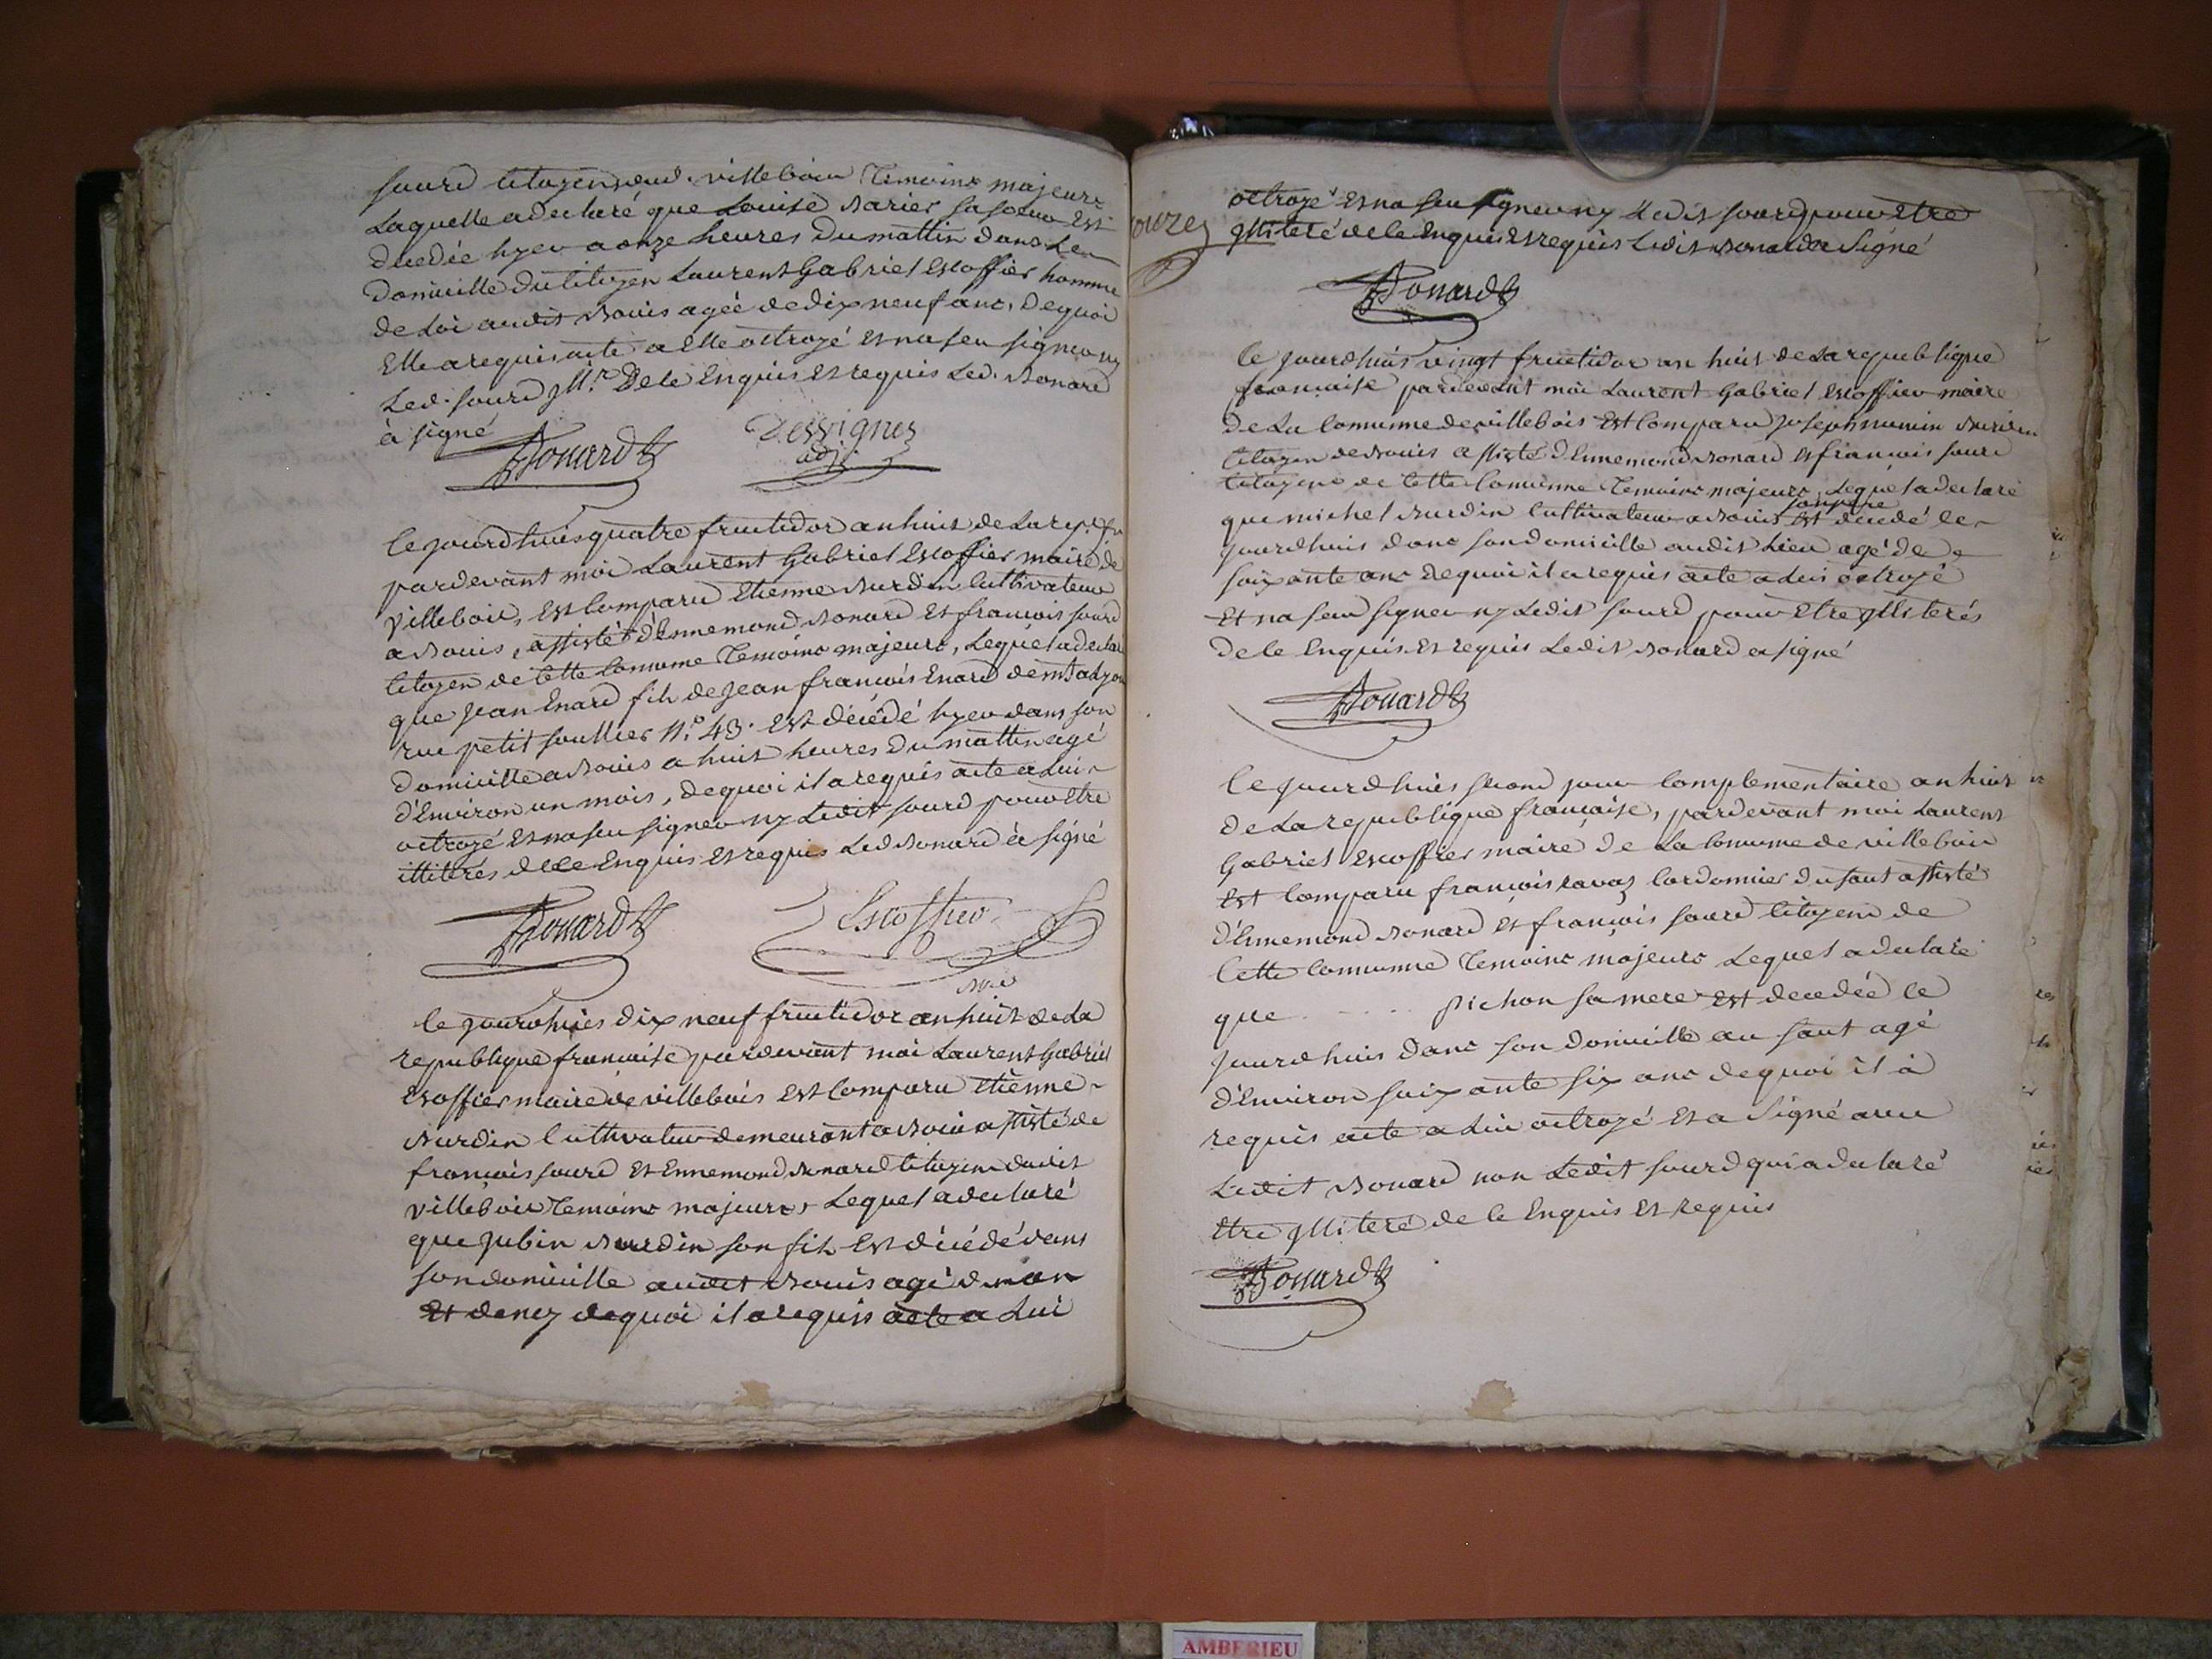 sourd citoyens dud. villebois Temoins majeurs
Laquelle a declaré que Louise Barier sa soeur Est
decedée hyer a onze heures du mattin dans Le
Domicille du citoyen Laurent Gabriel Escoffier homme
de Loi audit Bouis agée de dix neuf ans, Dequoi
Elle a requis acte a Elle octroyé Et na seu signer ny
Led. sourd Ill.re De ce Enquis Et requis Led. Bonard
à signé
Bonard
Dessignes
adj.
Le jourdhuis quatre fructidor an huit de La rep.e fr
pardevant moi Laurent Gabriel Escoffier maire de
villebois, Est Comparu Etienne Burdin Cultivateur
a Bouis, assisté d'Ennemond Bonard Et francois sourd
Citoyen de Cette Commune Temoins majeurs, Lequel a declaré
que Jean Enard fils de Jean francois Enard de
rue petit soullier N.o 43. Est décédé hyer dans son
domicille a Bouis a huit heures Du mattin agé
d'Environ un mois, Dequoi il a requis acte a Lui
octroyé Et na seu signer ny Ledit sourd pour Etre
illiterés de ce Enquis Et requis Led Bonard à signé
Bonard
Escoffier
mre
Le jourdhuis dix neuf fructidor an huit de La
republique francaise pardevant moi Laurent Gabriel
Escoffier maire de villebois Est Comparu Etienne
Burdin Cultivateur demeurant a Bouis assisté de
francois sourd Et Ennemond Bonard Citoyens dudit
villebois Temoins majeurs Lequel a declaré
que Jubin Burdin son fils Est décédé dans
son domicille audit Bouis agé d'un an
Et demy dequoi il a requis acte a Lui
octroyé Et na seu signer ny Ledit sourd pour Etre
Illiteré de ce Enquis Et requis Ledit Bonard a Signé
Bonard
Le jourdhuis vingt fructidor an huit de La republique
francaise pardevant moi Laurent Gabriel Escoffier maire
De La Commune de villebois Est Comparu Joseph mumin Burdin
Citoyen de Bouis assisté d'Ennemond Bonard Et francois sourd
Citoyens de Cette Commune Temoins majeurs, Lequel a declaré
son pere
que michel Burdin Cultivateur a Bouis Est décédé le
jourdhuis dans son domicille audit Lieu agé de
soixante ans Dequoi il a requis acte a Lui octroyé
Et na seu signer ny Ledit sourd pour Etre Illiterés
de ce Enquis Et requis Ledit Bonard a signé
Bonard
Le jourdhuis second jour Complementaire an huit
De La republique francaise, pardevant moi Laurent
Gabriel Escoffier maire De La Commune de villebois
Est Comparu francois ravaz Cordonnier du saut assisté
d'Ennemond Bonard Et francois sourd Citoyens de
Cette Commune Temoins majeurs Lequel a declaré
que ..... pichon sa mere Est decedée le
jourdhuis dans son domicille au saut agé
d'Environ soixante six ans dequoi il à
requis acte a Lui octroyé Et a Signé avec
Ledit Bonard non Ledit sourd qui a declaré
Etre Illiteré de ce Enquis Et requis
Bonard
AMBERIEU